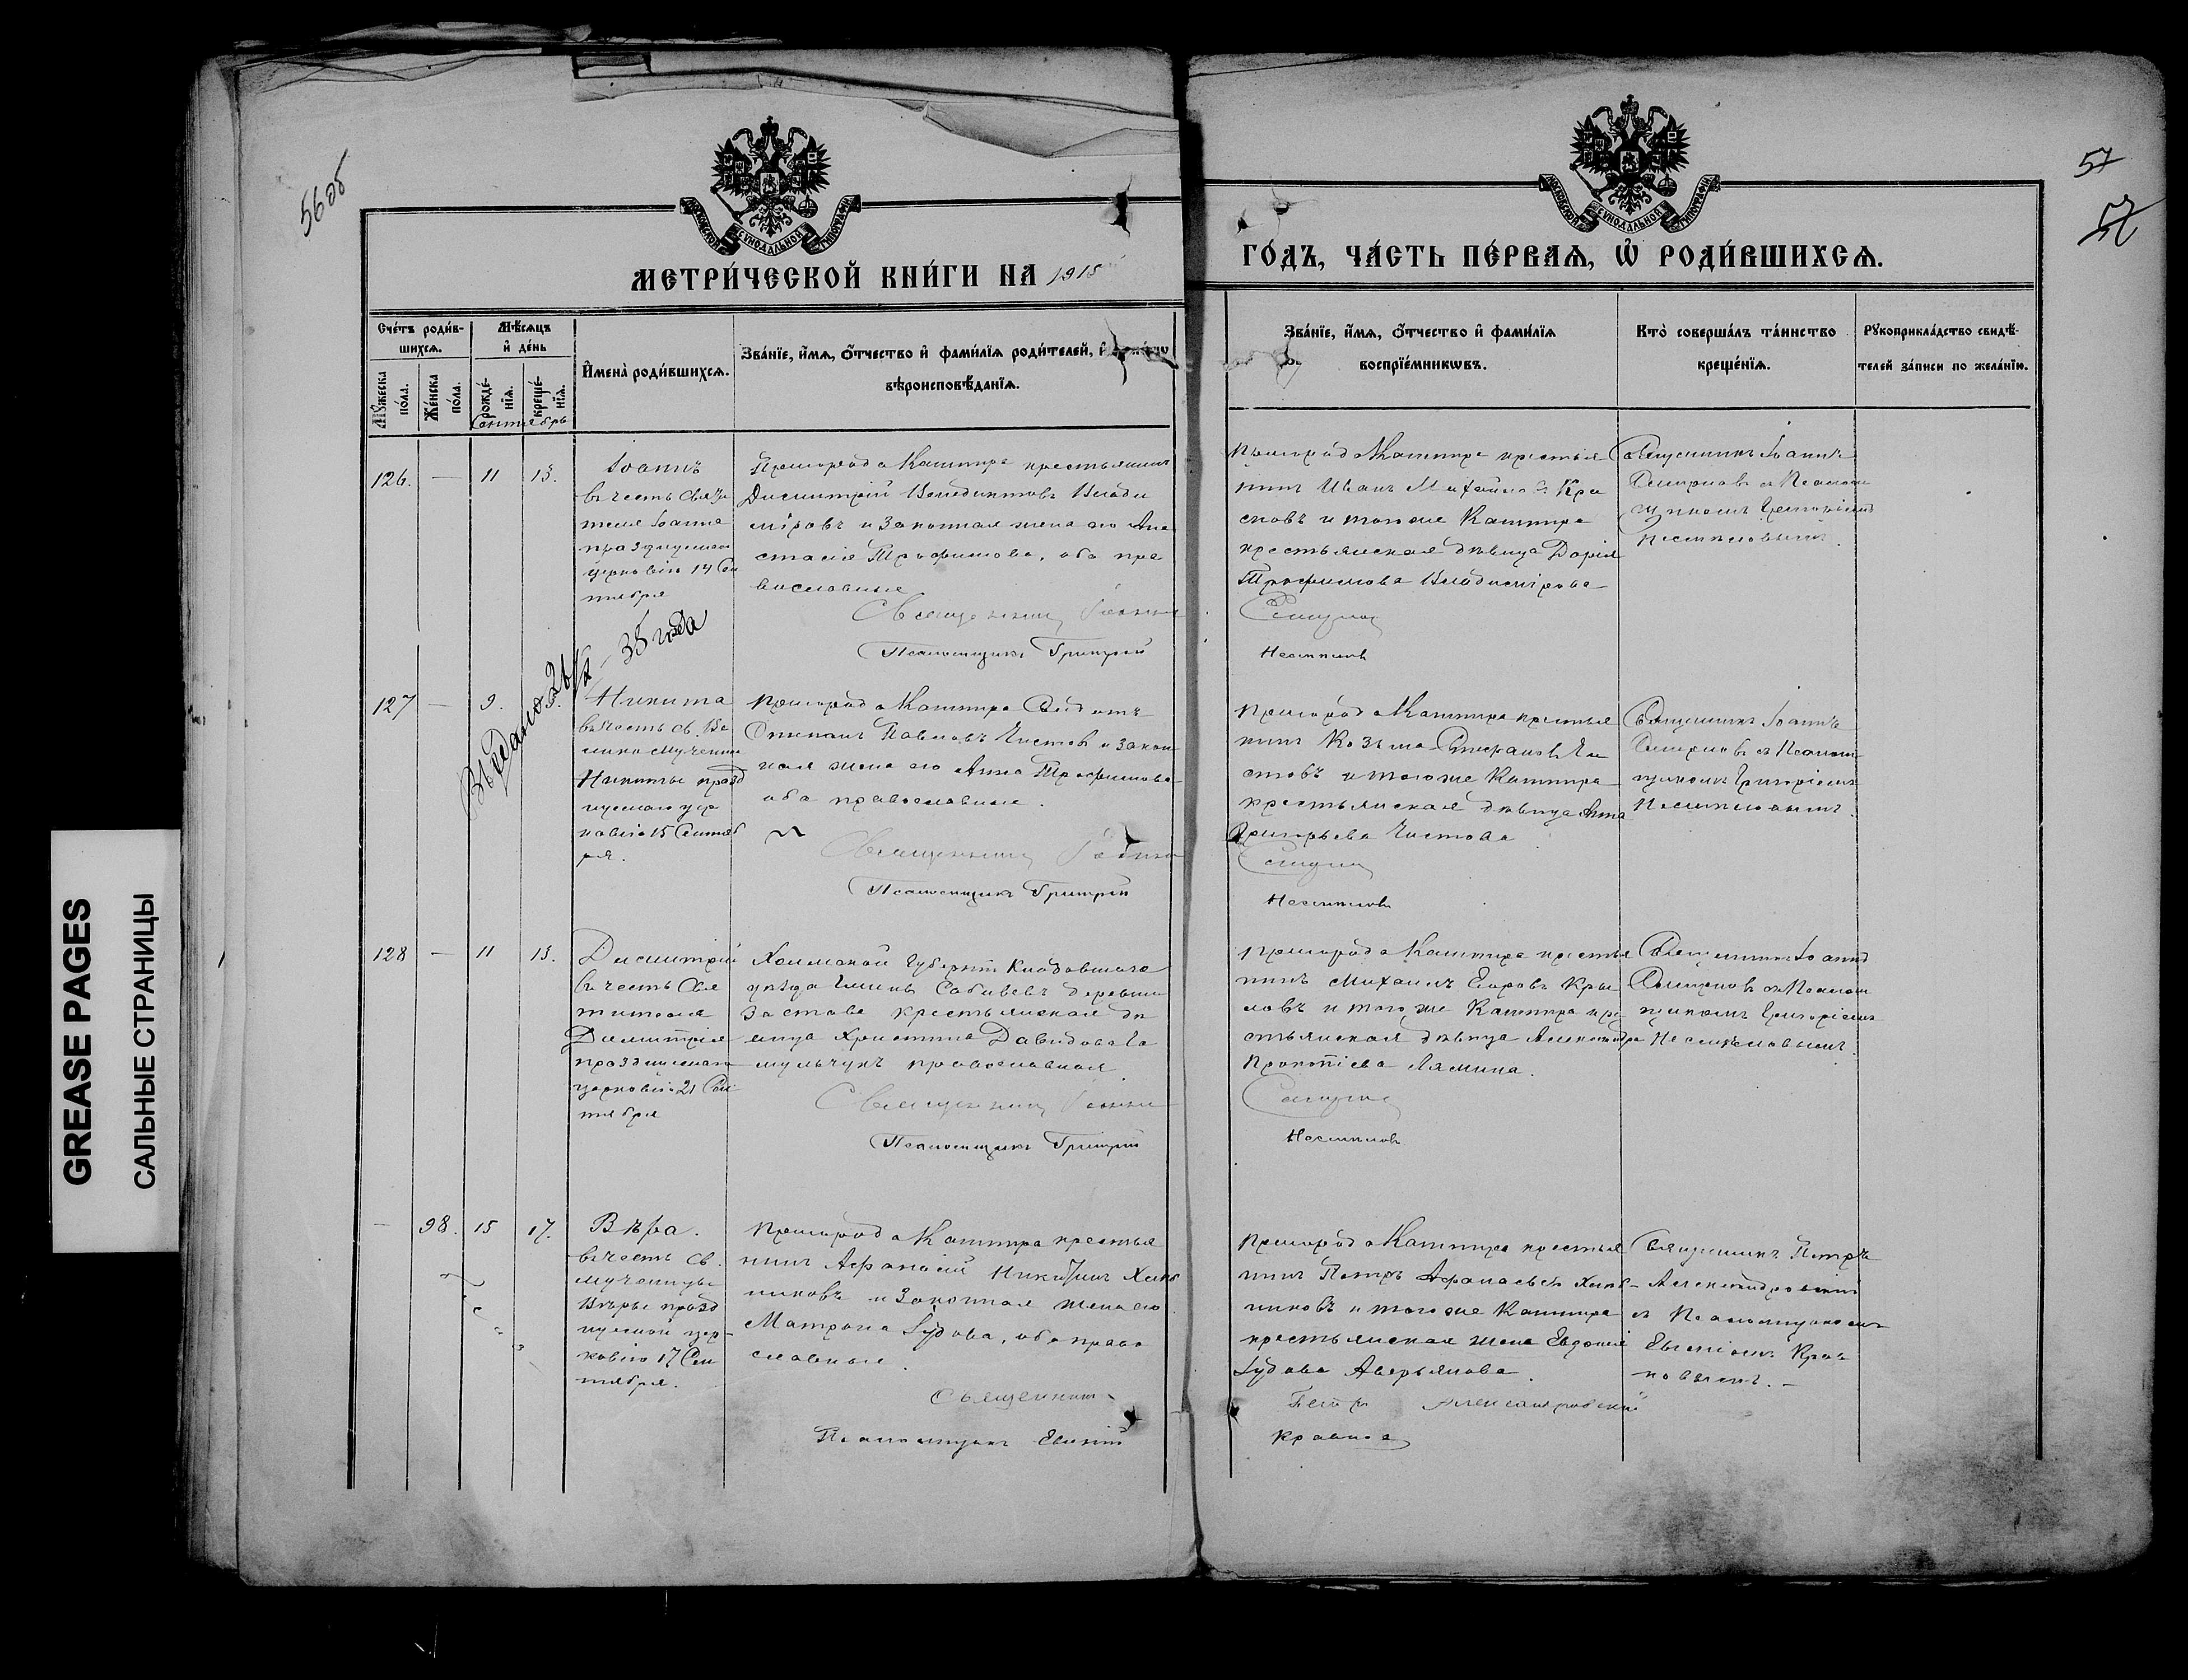 56об
57
57
МОСКОВСКОЙ СѴНОДАЛЬНОЙ ТИПОГРАФІИ
МОСКОВСКОЙ СѴНОДАЛЬНОЙ ТИПОГРАФІИ
МЕТРИ́ЧЕСКОЙ КНИ́ГИ НА 1915
ГО́ДЪ, ЧА́СТЬ ПЕ́РВАѦ, Ѡ҆ РОДИ́ВШИХСѦ.
Сче́тъ роди́в-
шихсѧ.
Мѣ́сѧцъ
и҆ де́нь
Мꙋ́жеска по́ла.
Же́нска по́ла.
рожде́-нїѧ.
креще́-нїѧ.
Сентябрь
И҆мена̀ роди́вшихсѧ.
Зва́нїе, и҆́мѧ, ѻ҆́тчество и҆ фами́лїѧ роди́телей, и҆
вѣроисповѣ́данїѧ.
Зва́нїе, и҆́мѧ, ѻ҆́тчество и҆ фами́лїѧ
воспрїе́мникѡвъ.
Кто̀ соверша́лъ та́инство
креще́нїѧ.
Рꙋкоприкла́дство свидѣ́-
телей за́писи по жела́нїю.
126. — 11 13.
Іоаннъ
въ честь Святи
теля Іоанна
празднуемаго
церковію 14 Сен
тября
Пригорода Каштира крестьянинъ
Димитрій Венедиктовъ Влади
міровъ и законная жена его Ана
стасія Трофимова, оба пра
вославные
Священникъ Іоаннъ
Псаломщикъ Григорій
Пригорода Каштира крестья
нинъ Иванъ Михаиловъ Кра
сновъ и того же Каштира
крестьянская дѣвица Дарія
Трофимова Владимірова
Смирнов
Несмеловъ
Священникъ Іоаннъ
Смирновъ съ Псалом
щикомъ Григоріемъ
Несмеловымъ.
Выдано 26/2 — 35 года
127 — 9. 13.
Никита
въ честь св. Ве
ликомученика
Никиты празд
нуемаго цер
ковію 15 Сентяб
ря.
Пригорода Каштира Солдатъ
Степанъ Павловъ Чистовъ и закон
ная жена его Анна Трофимова
оба православные.
Священникъ Іоаннъ
Псаломщикъ Григорій
Пригорода Каштира крестья
нинъ Козьма Стефановъ Чи
стовъ и того же Каштира
крестьянская дѣвица Анна
Григорьева Чистова
Смирнов
Несмеловъ
Священникъ Іоаннъ
Смирновъ съ Псалом
щикомъ Григоріемъ
Несмеловымъ.
128 — 11 13.
Димитрій
въ честь Свя
тителя
Димитрія
празднуемаго
церковію 21 Сен
тября
Холмской Губерніи Влодавскаго
уѣзда Гмины Собиборъ деревни
Застава крестьянская дѣ
вица Христина Давидова Га
мульчукъ православная
Священникъ Іоаннъ
Псаломщикъ Григорій
Пригорода Каштира крестья
нинъ Михаилъ Егоровъ Кры
ловъ и того же Каштира кре
стьянская дѣвица Александра
Прокопіева Лямина.
Смирнов
Несмеловъ
Священникъ Іоаннъ
Смирновъ съ Псалом
щикомъ Григоріемъ
Несмеловымъ.
— 98. 15 17.
Вѣра.
въ честь св.
мученицы
Вѣры празд
нуемой цер-
ковію 17 Сен
тября.
Пригорода Каштира крестья
нинъ Афанасій Никитинъ Хлѣб
никовъ и законная жена его
Матрона Іудова, оба право
славные.
Священникъ
Псаломщикъ Евгеній
Пригорода Каштира крестья
нинъ Петръ Афанасьевъ Хлѣб-
никовъ и того же Каштира
крестьянская жена Евдокія
Іудова Аверьянова.
Петръ Александровскій
Кравков
Священникъ Петръ
Александровскій
съ Псаломщикомъ
Евгеніемъ Крав
ковымъ. —
GREASE PAGES
САЛЬНЫЕ СТРАНИЦЫ